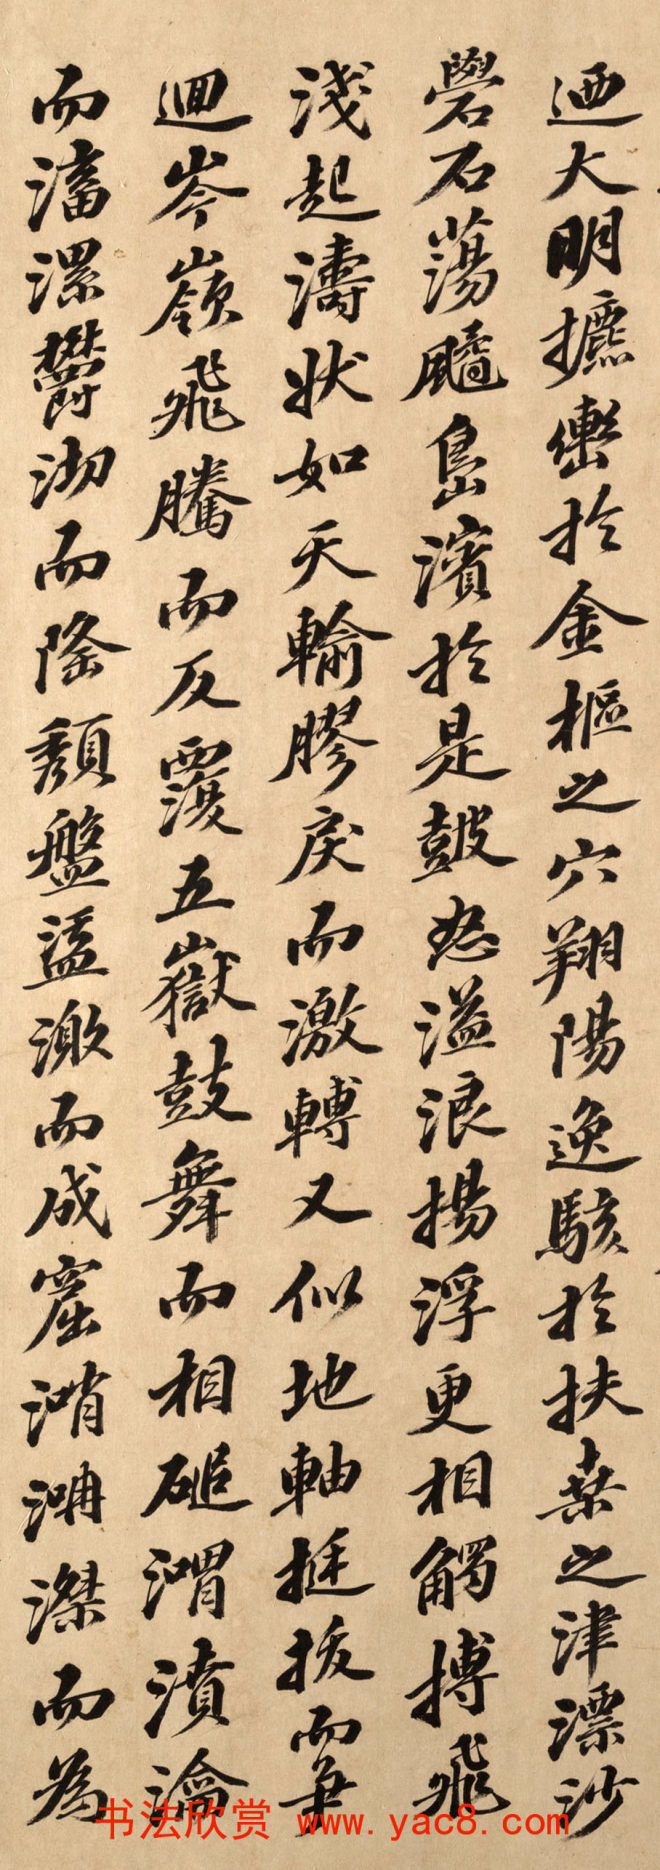 迺大明攄轡於金樞之穴翔陽逸駭於扶桑之津漂沙
礐石蕩颻島濱於是皷怒溢浪揚浮更相觸搏飛
淺起濤狀如天輸膠戾而激轉又似地軸挺拔而爭
迴岑嶺飛騰而反覆五嶽鼓舞而相磓渭濆瀹
而滀漯鬱沏而隆頹盤盓激而成窟㴽㴸滐而為
书法欣赏 www.yac8.com